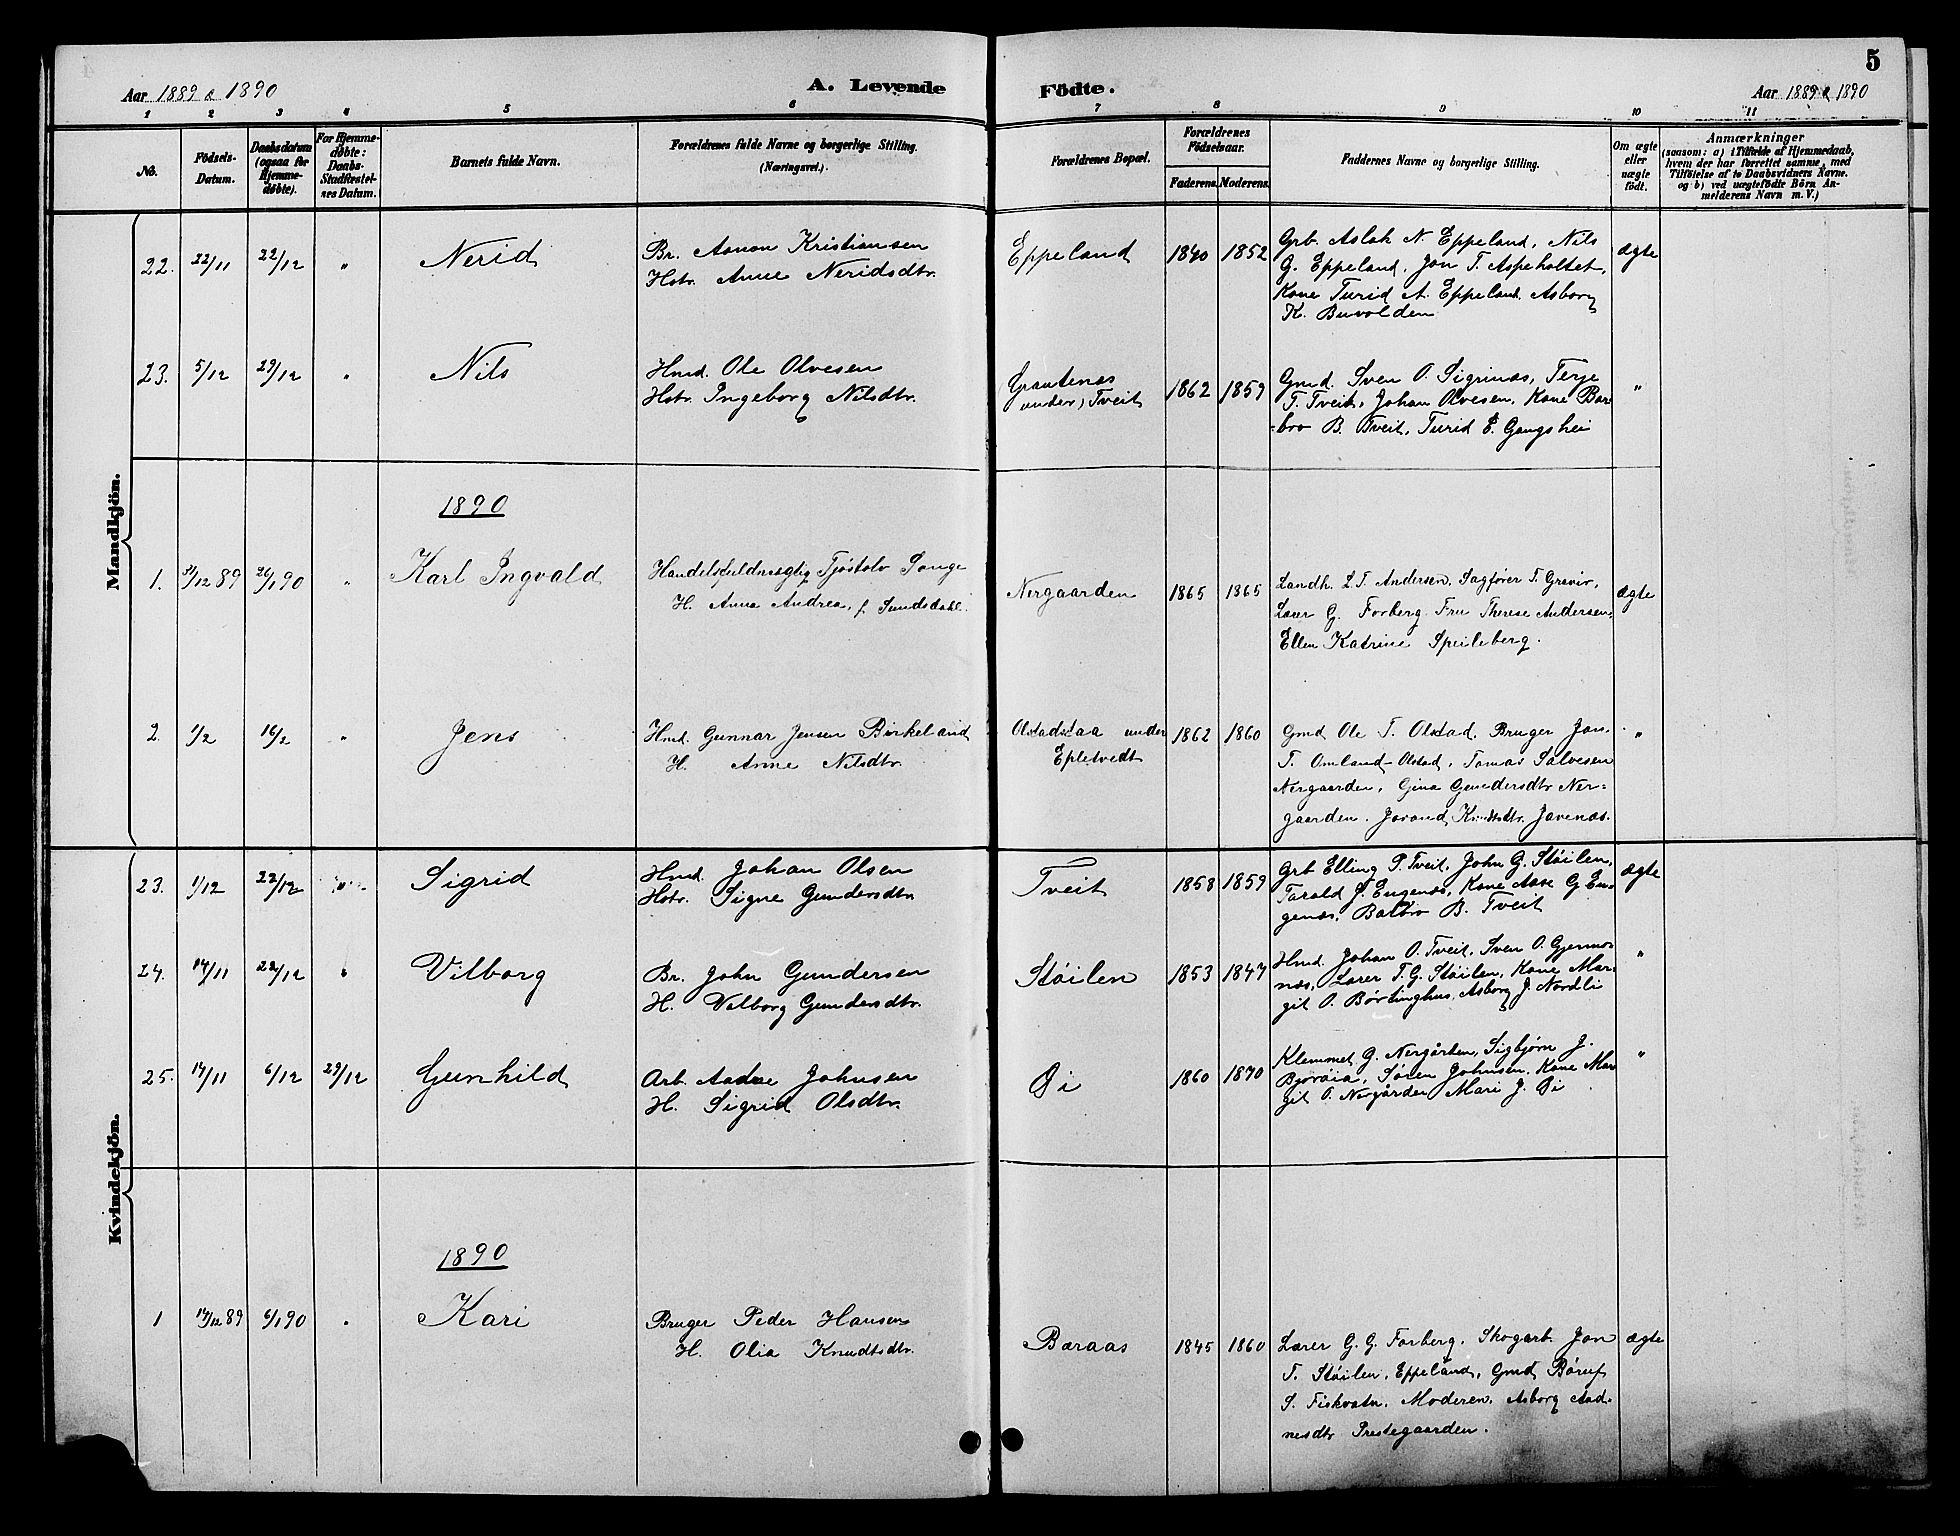 5
Aar 1889 & 1890
A. Levende Födte.
Aar 1889 & 1890
1 2 3 4 5 6 7 8 9 10 11
No.
Födsels-Datum.
Daabsdatum (ogsaa for Hjemme-døbte).
For Hjemme-døbte: Daabs-Stadfæstel-ses Datum.
Barnets fulde Navn.
Forældrenes fulde Navne og borgerlige Stilling. (Næringsvei.)
Forældrenes Bopæl.
Forældrenes Födselsaar.
Faderens. Moderens.
Faddernes Navne og borgerlige Stilling.
Om ægte eller uægte födt.
Anmærkninger
(saasom: a) i Tilfælde af Hjemmedaab,
hvem der har forrettet samme, med
Tilföielse af to Daabsvidners Navne.
og b) ved uægtefödte Börn An-
melderens Navn m. V.)
Mandkjön.
22. 22/11 22/12 " Nerid
Br. Aanon Kristiansen
Hstr. Anne Neridsdtr.
Eppeland 1840 1852
Grb. Aslak N. Eppeland, Nils
G. Eppeland, Jon T. Aspeholtet,
Kone Turid A. Eppeland, Asborg
K. Buvolden
ægte
23. 5/12 29/12 " Nils
Hmd. Ole Olvesen
Hstr. Ingeborg Nilsdtr.
Grautenæs
under Tveit 1862 1859
Gmd. Sven O. Sigrinæs, Terje
T. Tveit, Johan Olvesen, Kone Bar
=bro B. Tveit, Turid E. Gangshei
"
1890
1. 31/12 89 26/1 90 " Karl Ingvald
Handelsfuldmægtig Tjøstolv Songe
H. Anna Andrea, f. Sundsdahl.
Nergaarden 1865 1865
Landh. L. T. Andersen, Sagfører T. Grevir,
Lærer G. Forberg. Fru Therese Andersen,
Ellen Katrine Speileberg.
ægte
2. 1/2 16/2 " Jens
Hmd. Gunnar Jensen Birkeland
H. Anne Nilsdtr.
Olstadstaa under
Epletvedt 1862 1860
Gmd Ole T. Olstad, Bruger Jon
T. Omland-Olstad, Tomas Salvesen
Nergaarden, Gina Gundersdtr Ner-
gaarden. Jorand Knudtsdtr. Javenæs.
"
Kvindekjön.
23. 1/12 22/12 " Sigrid
Hmd. Johan Olsen
Hstr. Signe Gundersdtr
Tveit 1858 1859
Grb Elling P. Tveit, John G. Støilen,
Tarald J. Engenæs, Kone Aase G En-
genæs, Balbro B. Tveit
ægte
24. 14/11 29/12 " Vilborg
Br. John Gundersen
H. Vilborg Gundersdtr.
Støilen 1853 1847
Hmd. Johan O. Tveit, Sven O. Gjenno-
næs, Lærer T. G. Støilen, Kone Mar-
git O. Børtinghus, Asborg J. Nordli
"
25. 14/11 6/12 29/12 Gunhild
Arb. Aadne Johnsen
H. Sigrid Olsdtr.
Øi 1860 1870
Klemmet G. Nergården, Sigbjørn J.
Bjorøia, Søren Johnsen, Kone Mar
git O. Nergården Mari J. Øi
"
1890
1 14/12 89 6/1 90 " Kari
Bruger Peder Hansen
H. Olia Knudtsdtr.
Bæraas 1845 1860
Lærer G. G. Forberg, Skogarb. Jon
T. Støilen, Eppeland, Gmd Børuf
S. Fiskvatn, Moderen, Asborg Aad-
nesdtr Prestegaarden.
ægte